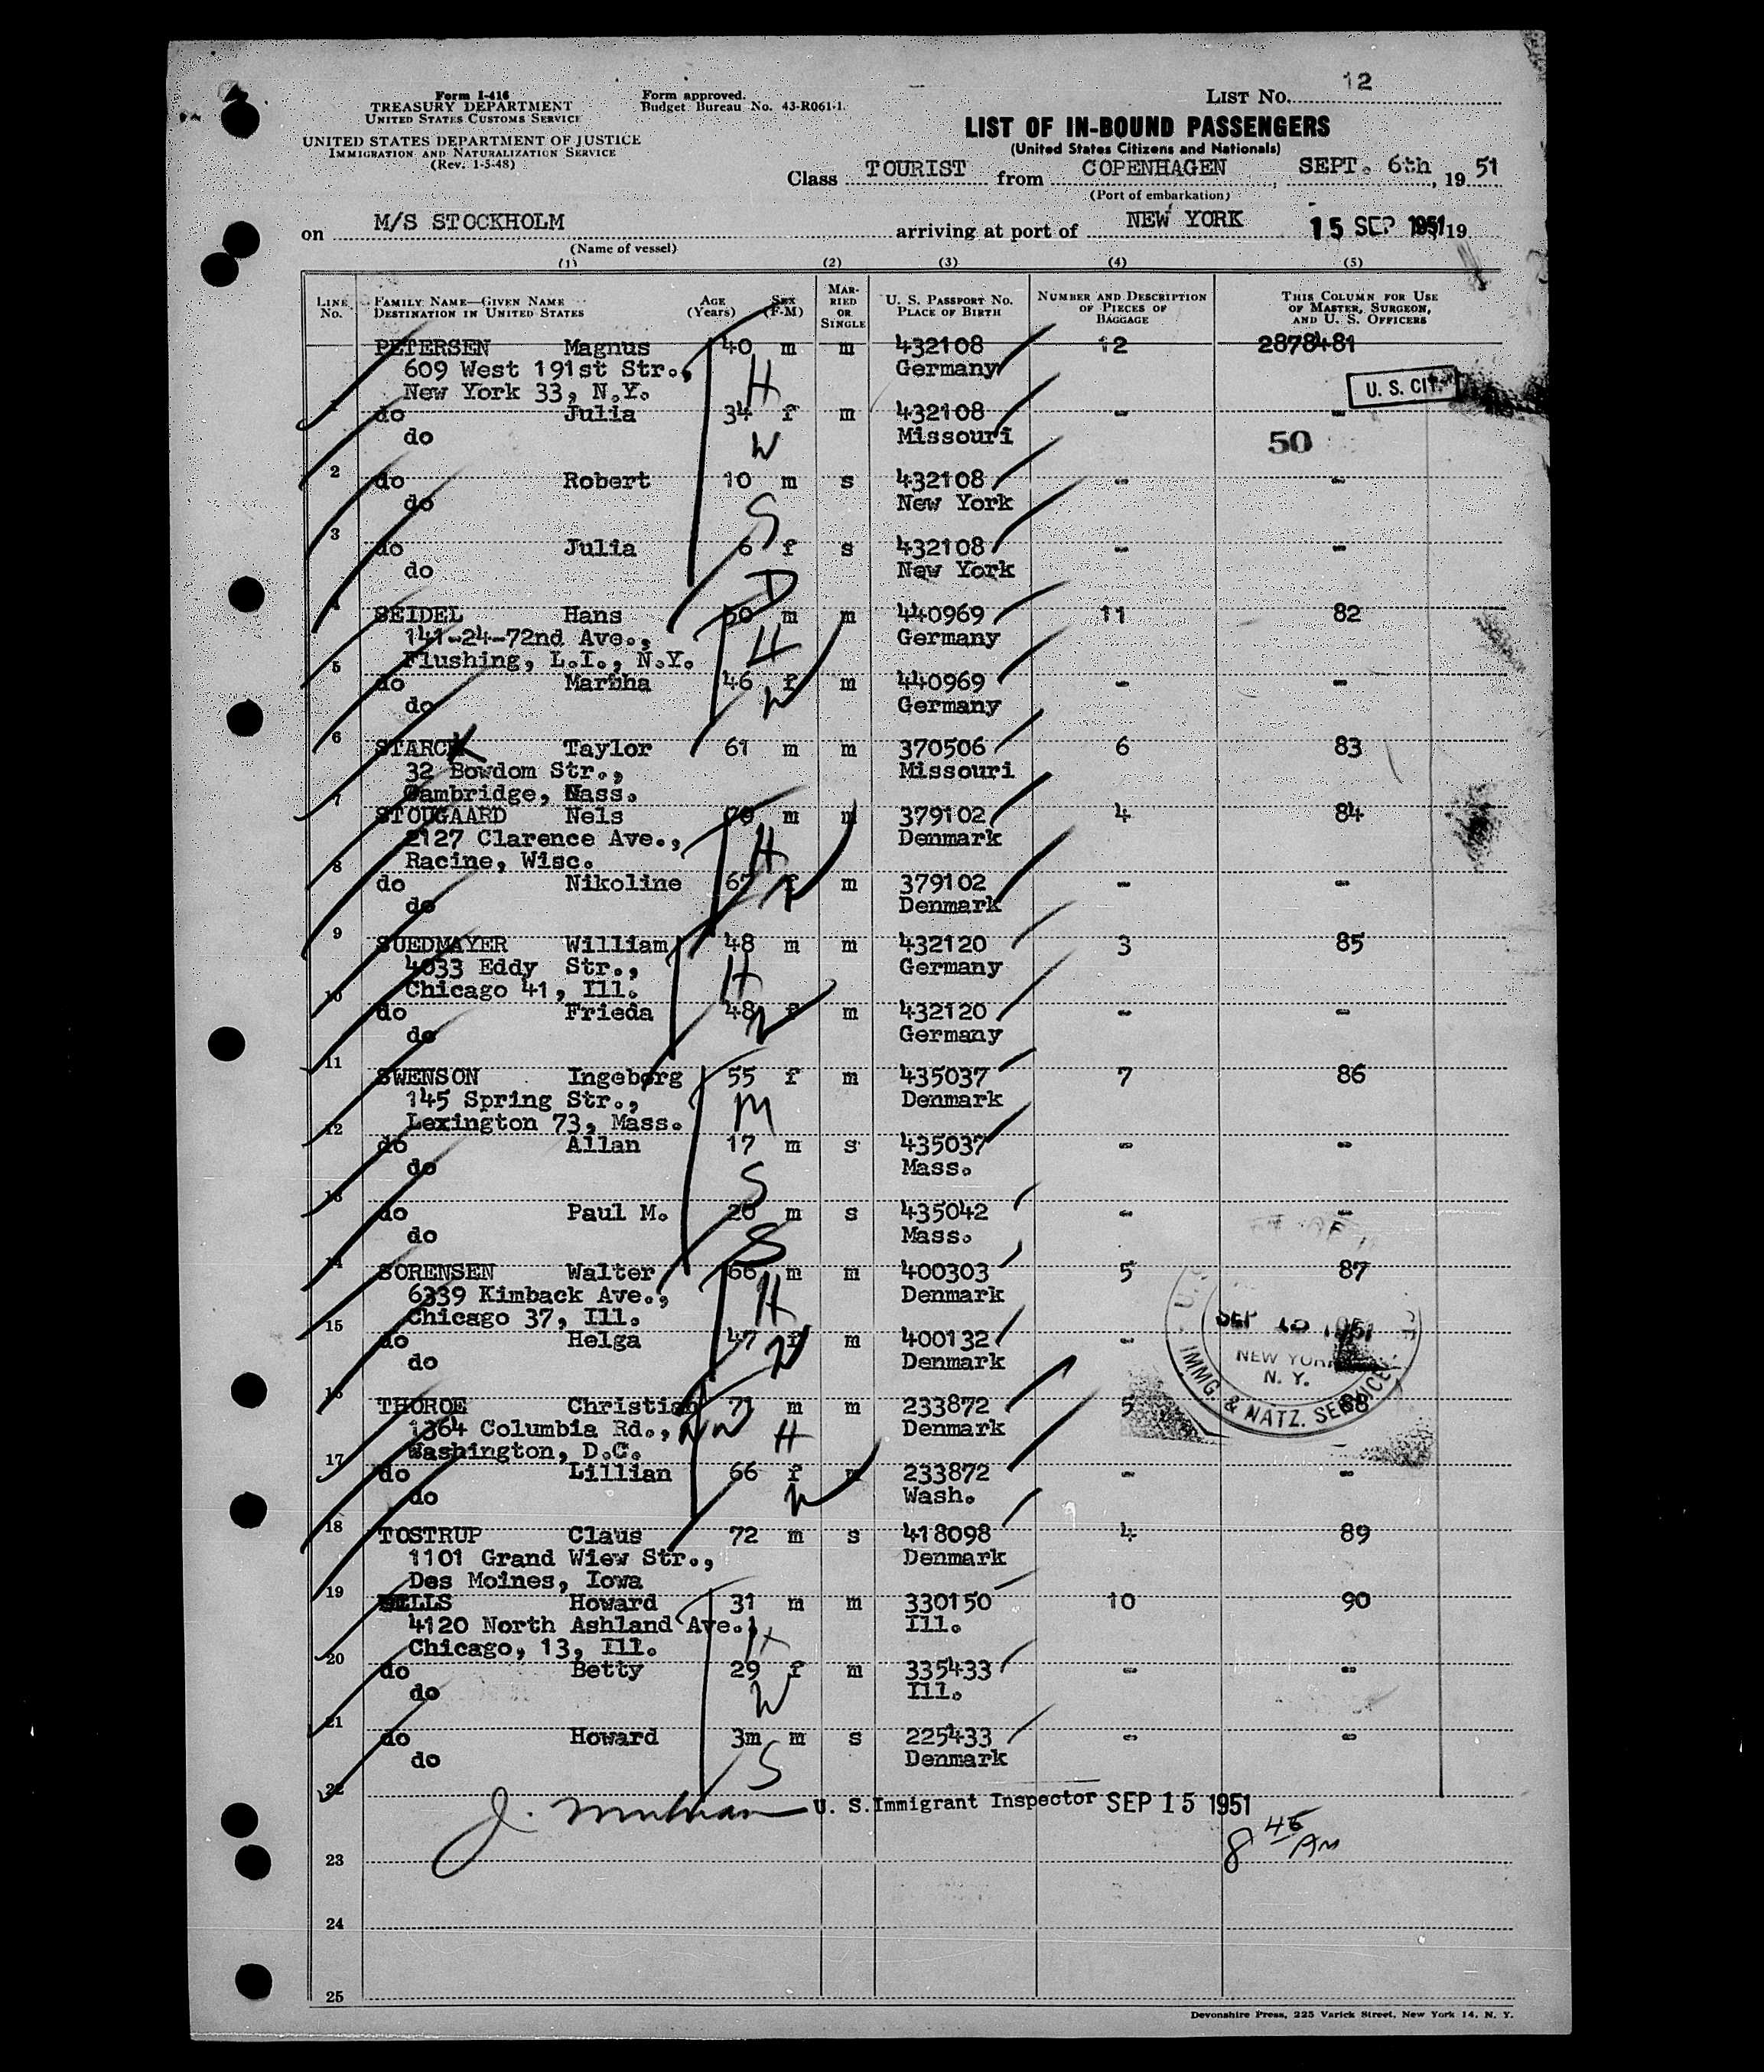 Form I-416
TREASURY DEPARTMENT
UNITED STATES CUSTOMS SERVICE
UNITED STATES DEPARTMENT OF JUSTICE
IMMIGRATION AND NATURALIZATION SERVICE
(Rev. 1-5-48)
Form approved.
Budget Bureau No. 43-R061-1.
LIST NO. 12
LIST OF IN-BOUND PASSENGERS
(United States Citizens and Nationals)
Class TOURIST from COPENHAGEN, SEPT. 6th, 1951
(Port of embarkation)
on M/S STOCKHOLM arriving at port of NEW YORK 15 SEP 1951 19
(Name of vessel)
(1) (2) (3) (4) (5)
LINE No. FAMILY NAME—GIVEN NAME DESTINATION IN UNITED STATES AGE (Years) SEX (F-M) MARRIED OR SINGLE U. S. PASSPORT NO. PLACE OF BIRTH NUMBER AND DESCRIPTION OF PIECES OF BAGGAGE THIS COLUMN FOR USE OF MASTER, SURGEON, AND U. S. OFFICERS
PETERSEN Magnus 40 m m 432108 12 2878481
609 West 191st Str., H Germany
New York 33, N.Y. U. S. CIT.
1 do Julia 34 f m 432108 - -
do W Missouri 50
2 do Robert 10 m s 432108 - -
do S New York
3 do Julia 6 f s 432108 - -
do D New York
4 SEIDEL Hans 50 m m 440969 11 82
141-24-72nd Ave., H Germany
5 Flushing, L.I., N.Y.
do Martha 46 f m 440969 - -
do W Germany
6 STARCK Taylor 61 m m 370506 6 83
32 Bowdom Str., Missouri
7 Cambridge, Mass.
STOUGAARD Nels 70 m m 379102 4 84
2127 Clarence Ave., H Denmark
8 Racine, Wisc.
do Nikoline 67 f m 379102 - -
do W Denmark
9 SUEDMAYER William 48 m m 432120 3 85
4033 Eddy Str., H Germany
10 Chicago 41, Ill.
do Frieda 48 f m 432120 - -
do W Germany
11 SWENSON Ingeborg 55 f m 435037 7 86
145 Spring Str., M Denmark
12 Lexington 73, Mass.
do Allan 17 m s 435037 - -
do S Mass.
13 do Paul M. 20 m s 435042 - -
do S Mass.
14 SORENSEN Walter 66 m m 400303 5 87
6339 Kimback Ave., H Denmark
15 Chicago 37, Ill.
do Helga 47 f m 400132 -
do W Denmark
SEP 1951
NEW YORK
N. Y.
IMMG. & NATZ. SERVICE
16 THOROE Christian 71 m m 233872 5 88
1364 Columbia Rd., H Denmark
17 Washington, D.C.
do Lillian 66 f m 233872 - -
do W Wash.
18 TOSTRUP Claus 72 m s 418098 4 89
1101 Grand Wiew Str., Denmark
19 Des Moines, Iowa
WILLS Howard 31 m m 330150 10 90
4120 North Ashland Ave., H Ill.
20 Chicago, 13, Ill.
do Betty 29 f m 335433 - -
do W Ill.
21 do Howard 3m m s 225433 - -
do S Denmark
22
J. U. S. Immigrant Inspector SEP 15 1951
8 45 AM
23
24
25
Devonshire Press, 225 Varick Street, New York 14, N. Y.